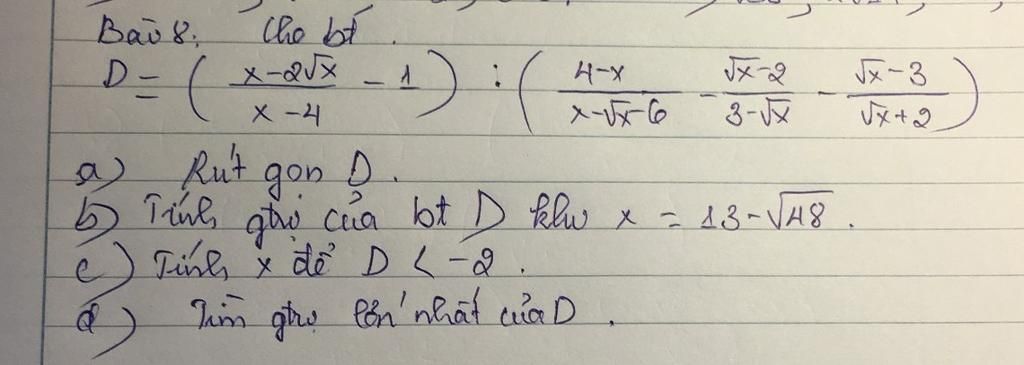 Bài 8: Cho bt.
D = ( (x-2√x)/(x-4) - 1 ) : ( (4-x)/(x-√x-6) - (√x-2)/(3-√x) - (√x-3)/(√x+2) )
a) Rút gọn D.
b) Tính gtrị của bt D khi x = 13-√48.
c) Tính x để D < -2.
d) Tìm gtrị lớn nhất của D.